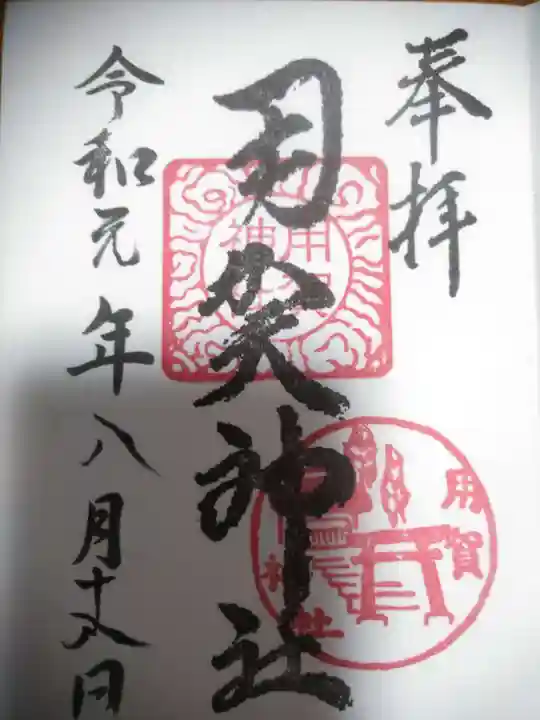 奉拝
用賀神社
令和元年八月十八日
用賀神社
用賀神社